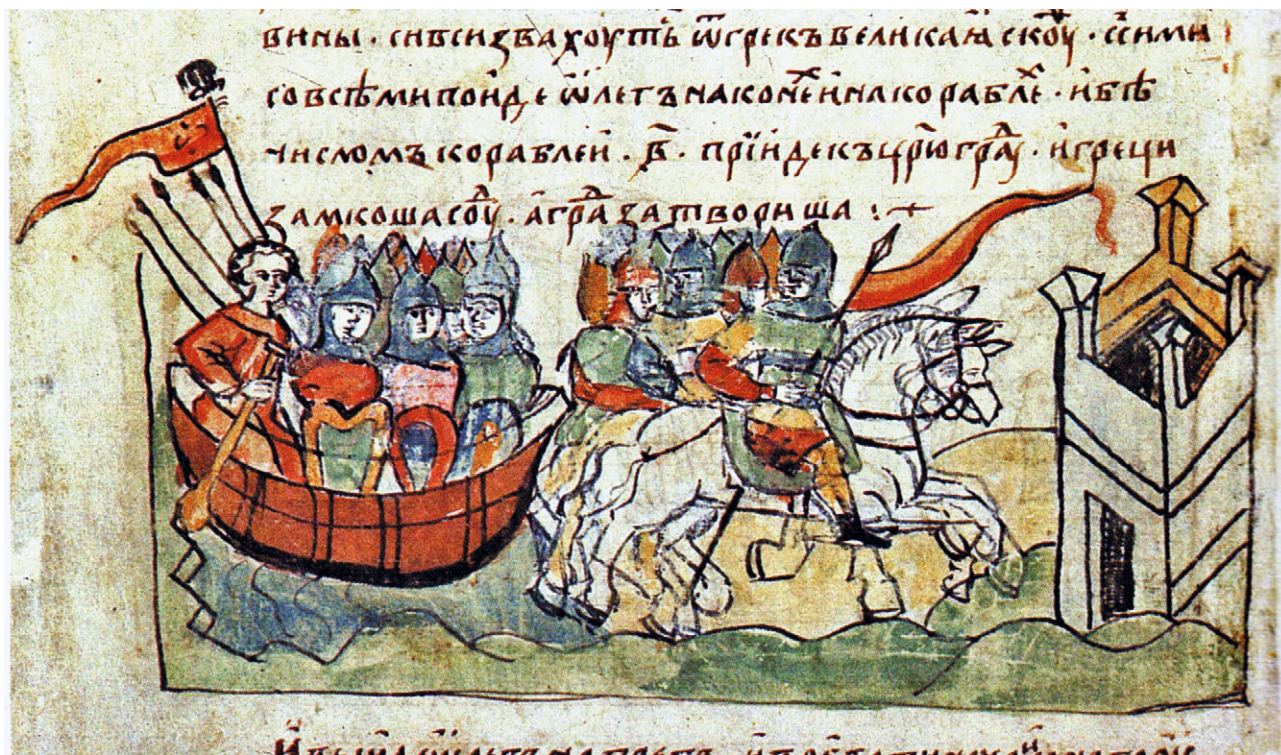 вины · сивсизвахоуть ѿгрекъ великаꙗ скоуⷴ · сⸯсими
со всѣми поиде ѡлегъ на конеⷯ и на кораблеⷯ · и бѣ
числомъ кораблеи · в҃ · прїиде къ цр҃юграⷣу · и греци
замкоша соуⷣ · а граⷣ затвориша :~